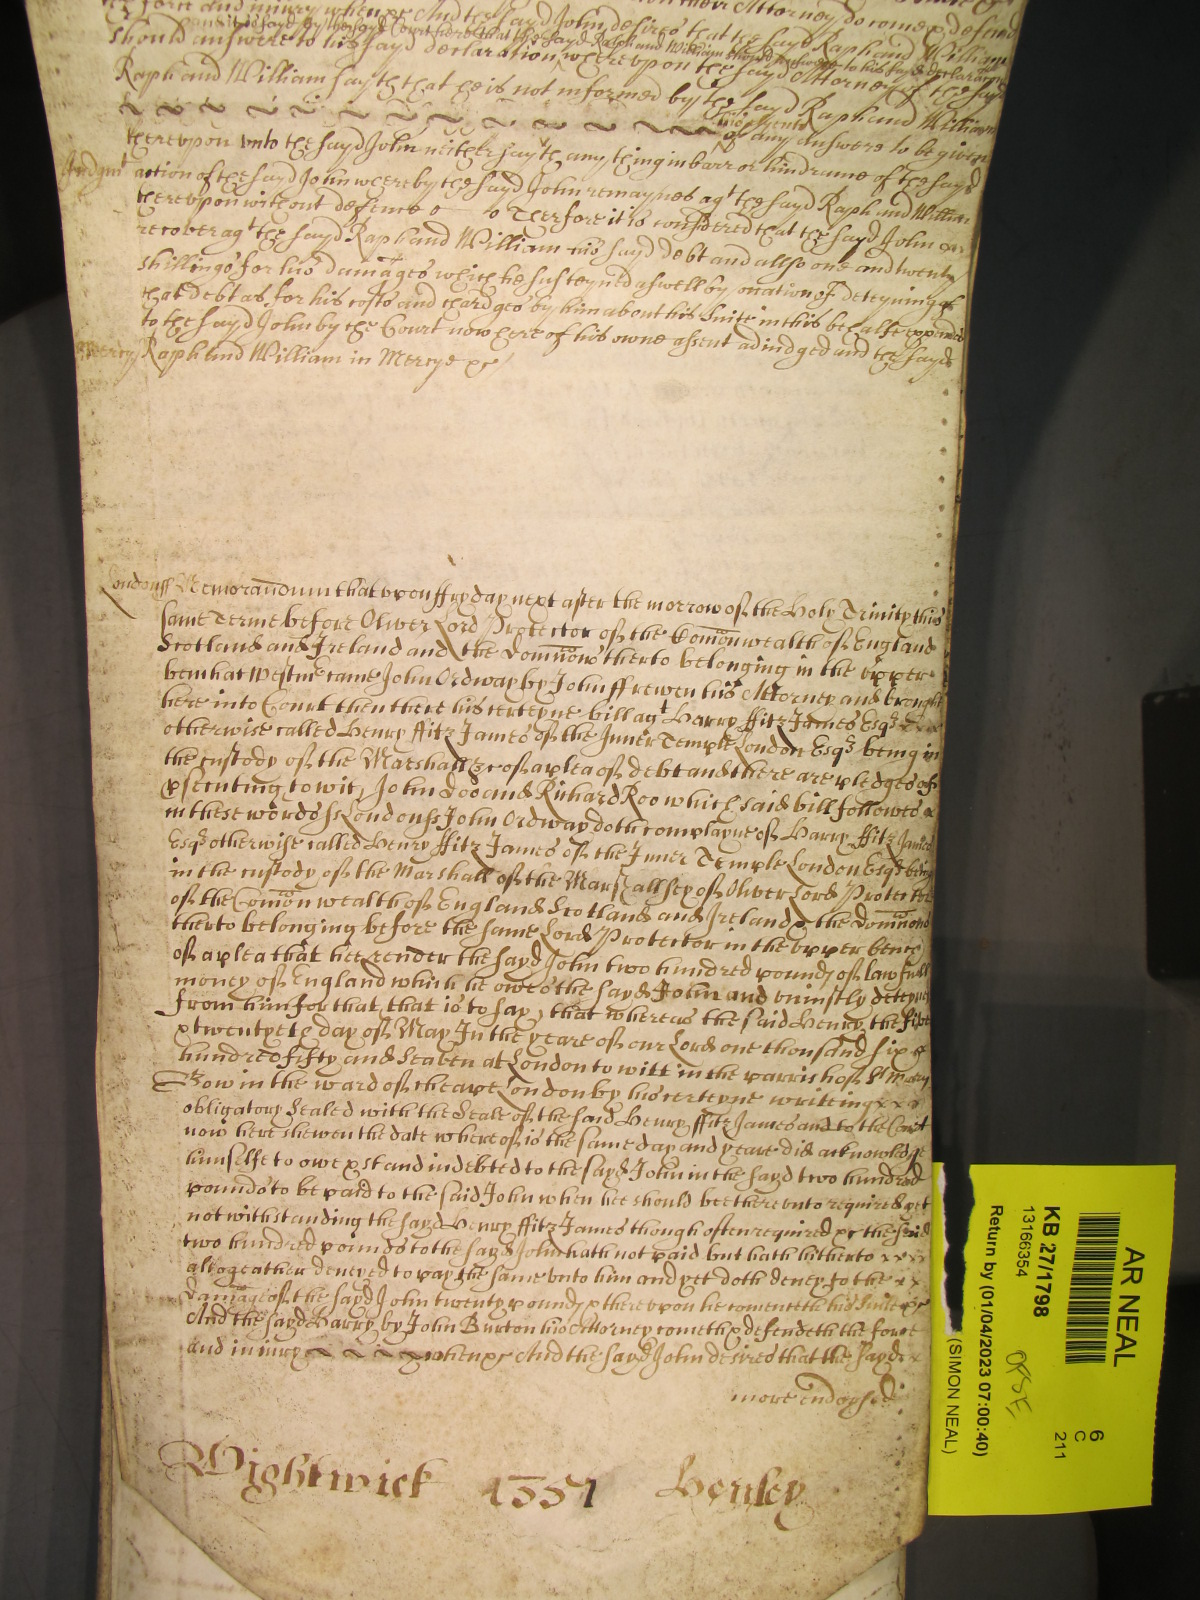 ye force and iniury when &c And the sayd John desires that the sayd Raph and William
should answere to his sayd declaration wherevpon the sayd Attorney of the sayd
Raph and William sayth that he is not informed by the sayd Raph and William
his Clyents of any answere to be given
therevpon vnto the sayd John neither sayth any thing in barr or hindrance of the sayd
Judgmt action of the sayd John whereby the sayd John remaynes agt the sayd Raph and William
therevpon without defence Therfore it is considered that the sayd John
recover agt the sayd Raph and William his sayd debt and allso one and twenty
shillings for his damages which he susteyned aswell by occation of deteyning of
that debt as for his costs and chardges by him about his suite in this behalfe expended
to the sayd John by the Court now here of his owne assent adiudged and the sayd
mercy Raph and William in Mercye &c
Londonss Memorandum that vpon ffryday next after the morrow of the Holy Trinity this
same Terme before Oliver Lord Protector of the Comonwealth of England
Scotland and Ireland and the Dominions therto belonging in the vpper
bench at Westmr came John Ordway by John ffrewen his Attorney and brought
here into Court then there his certeyne bill agt Harry ffitz James Esqr
otherwise called Henry ffitz James of the Inner Temple London Esqr being in
the custody of the Marshall &c of a plea of debt and there are pledges of
psecuting to wit, John Doo and Richard Roo which said bill followes
in these words ss Londonss John Ordway doth complayne of Harry ffitz James
Esqr otherwise called Henry ffitz James of the Inner Temple London Esqr being
in the custody of the Marshall of the Marshallsey of Oliver Lord Protector
of the Comonwealth of England Scotland and Ireland & the Dominions
therto belonging before the same Lord Protector in the vpper bench
of a plea that hee render the sayd John two hundred pounds of lawfull
money of England which he owes the sayd John and vniustly deteynes
from him for that, that is to say, that whereas the said Henry the five
& twentyeth day of May In the yeare of our Lord one thousand six
hundred fifty and Seaven at London to witt in the parrish of St Mary
Bow in the ward of cheape London by his certeyne writeing
obligatory Sealed with the Seale of the said Henry ffitz James and to the Court
now here shewen the date whereof is the same day and yeare did acknowledge
himselfe to owe & stand indebted to the sayd John in the sayd two hundred
pounds to be paid to the said John when hee should bee therevnto required yet
notwithstanding the sayd Henry ffitz James though often required &c the said
two hundred pounds to the sayd John hath not paid but hath hitherto
altogeather denyed to pay the same vnto him and yet doth deney to the
damage of the sayd John twenty pounds & therevpon he comenceth his suite &c
And the sayd Harry by John Burton his Attorney cometh & defendeth the force
and iniury when &c And the sayd John desires that the sayd
more endorsed
Wightwick 1551 Henley
AR NEAL
6
C
211
KB 27/1798
13166354
Return by (01/04/2023 07:00:40)
(SIMON NEAL)